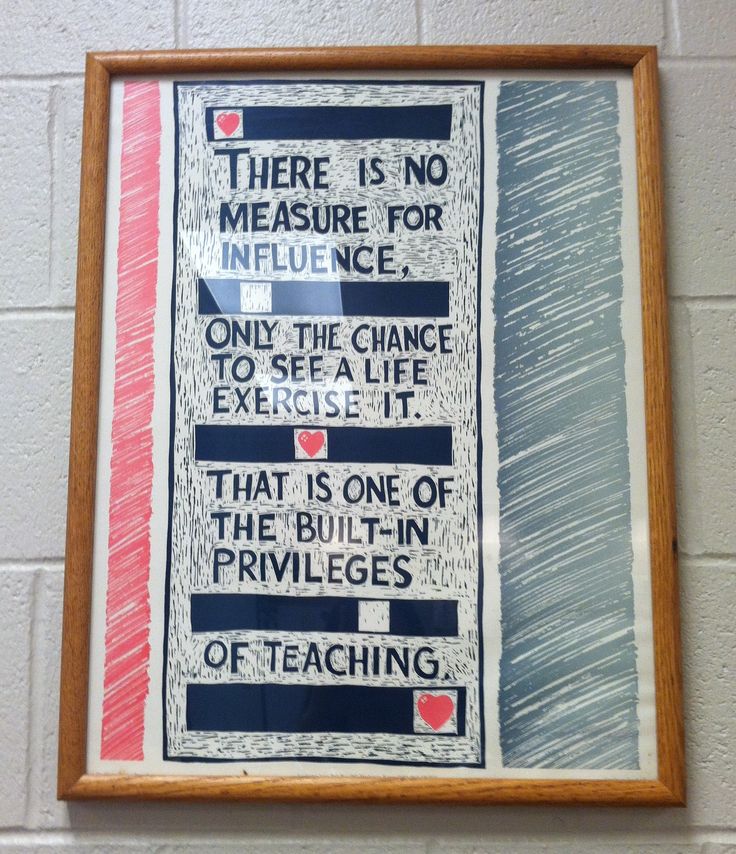 THERE IS NO
MEASURE FOR
INFLUENCE,
ONLY THE CHANCE
TO SEE A LIFE
EXERCISE IT.
THAT IS ONE OF
THE BUILT-IN
PRIVILEGES
OF TEACHING.